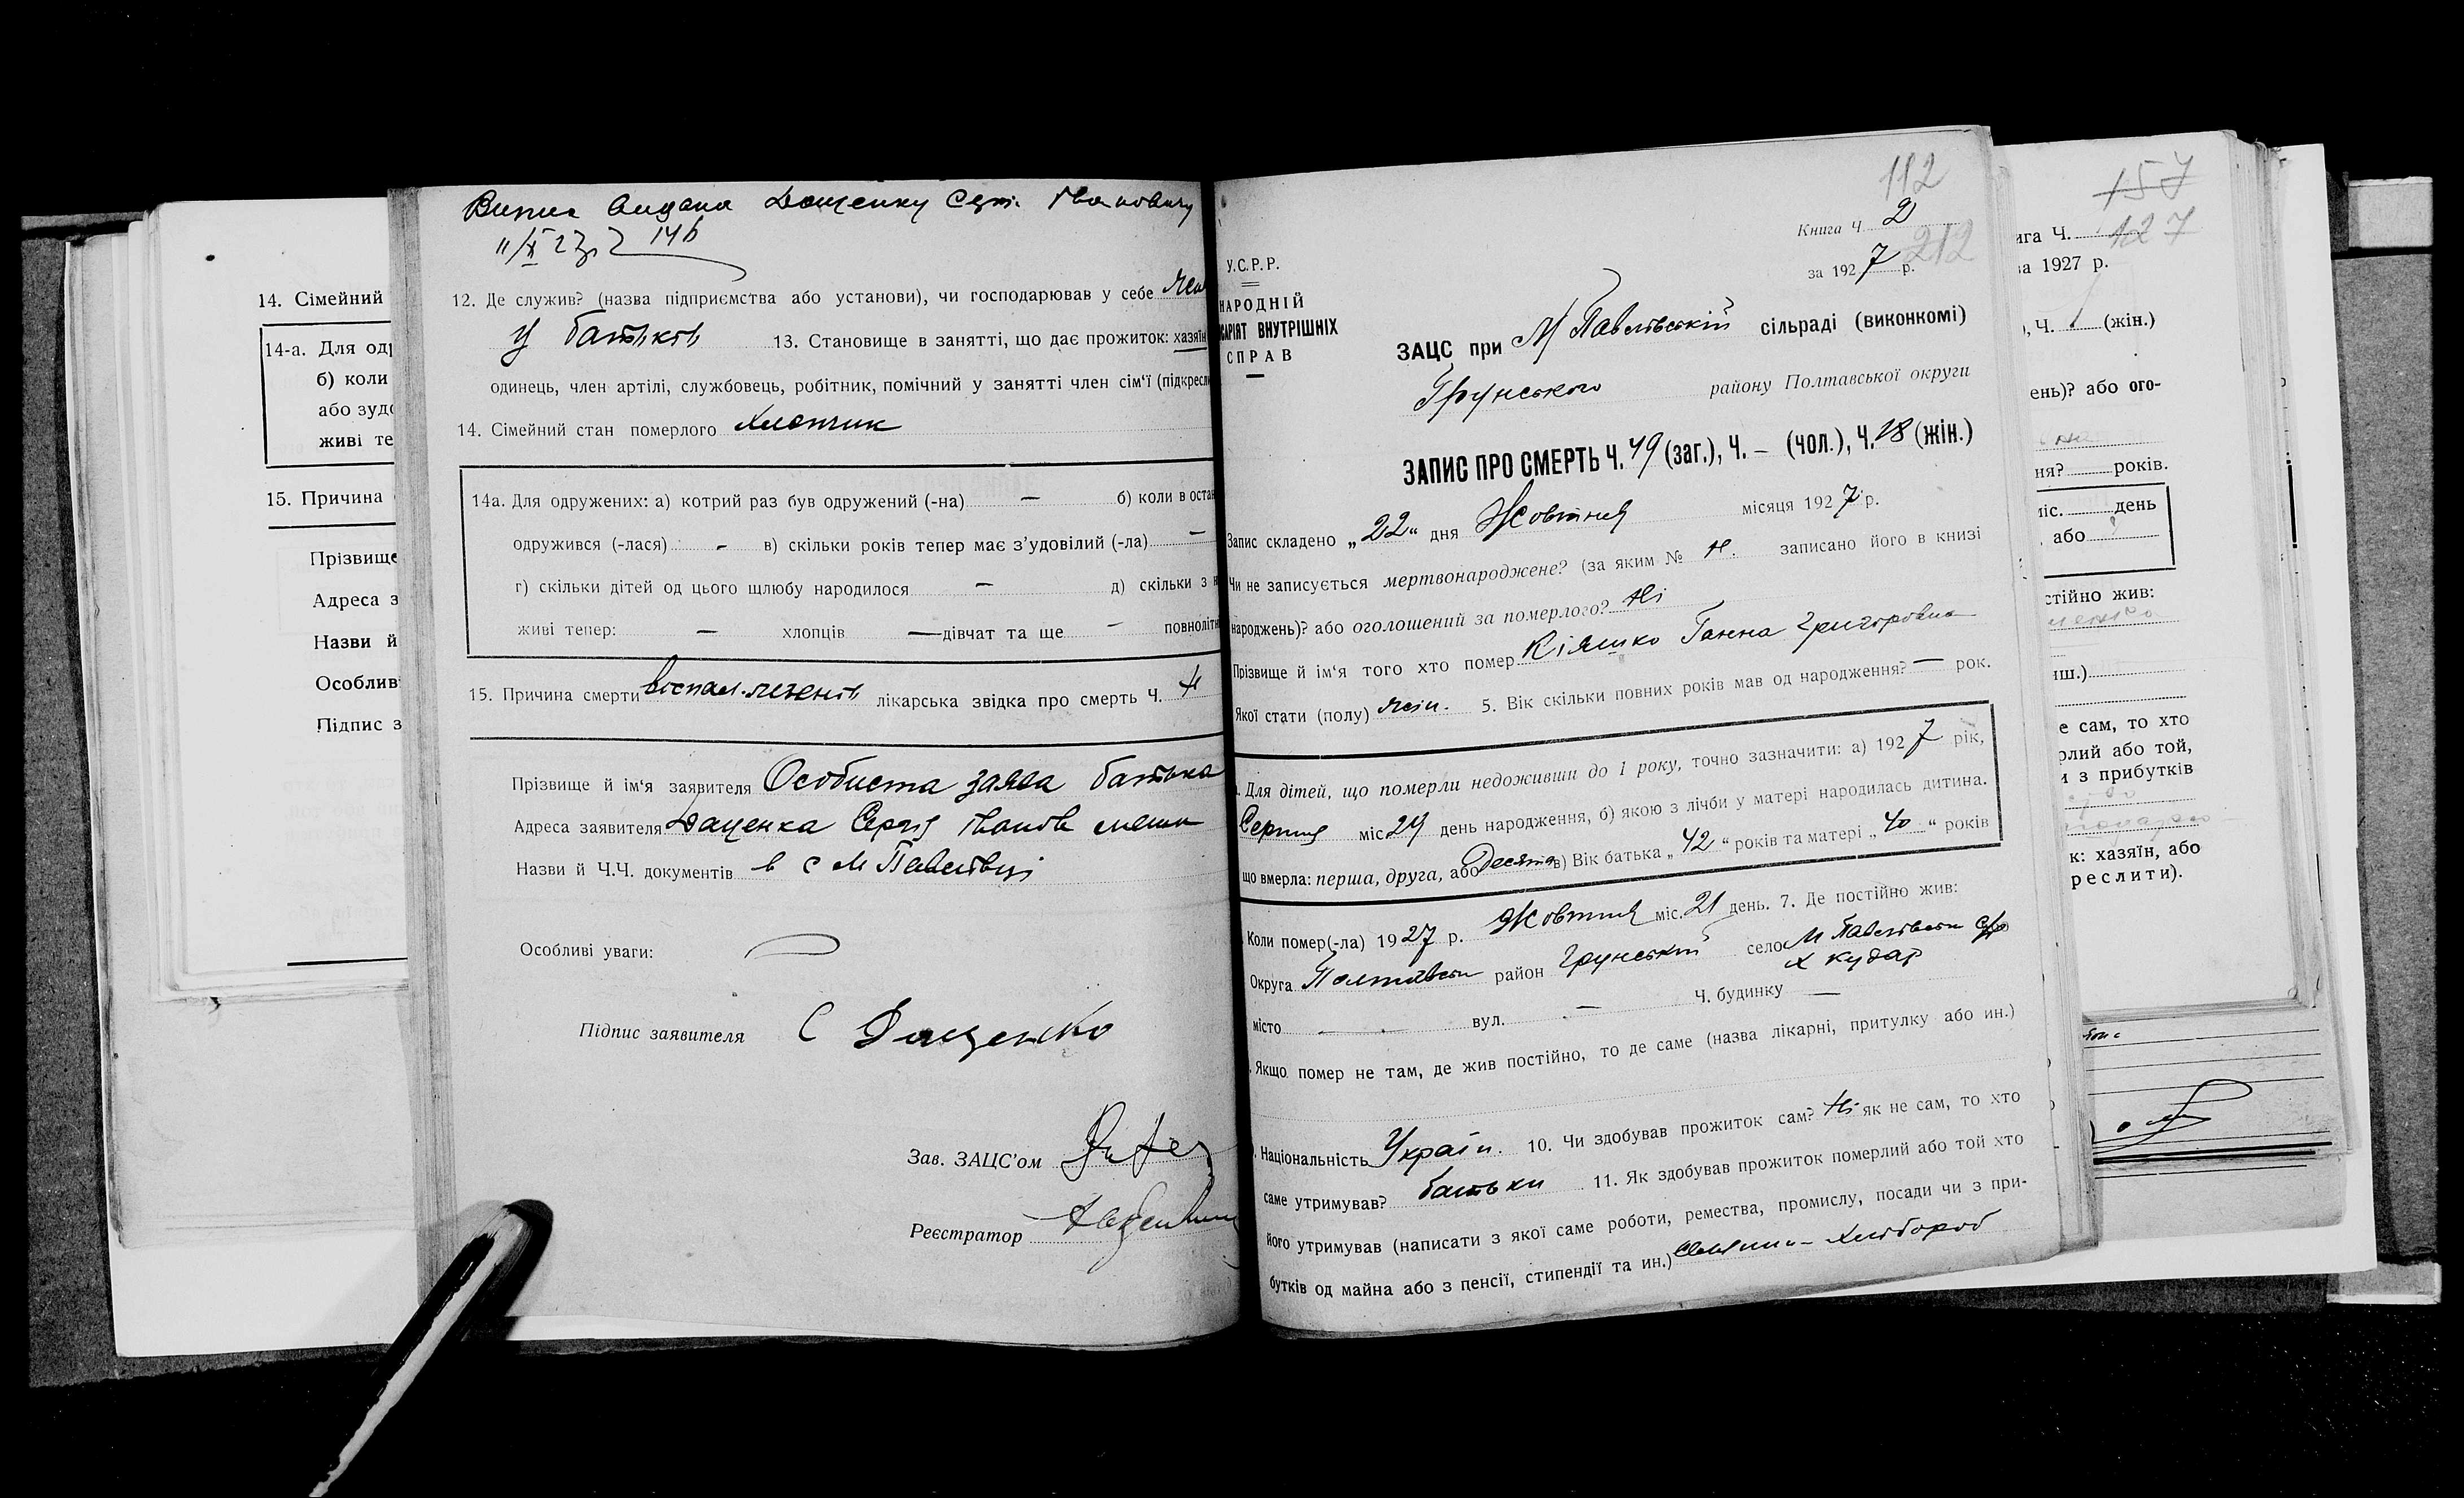 14. Сімейний
14-а. Для од
б) коли
або зуд
живі те
15. Причина
Прізвище
Адреса з
Назви й
Особлив
Підпис з
Випис видана Даценку Серг. Івановичу
11/X 27р. 146
12. Де служив? (назва підприємства або установи), чи господарював у себе
У батьків 13. Становище в занятті, що дає прожиток: хазяїн
одинець, член артілі, службовець, робітник, помічний у занятті член сім'ї (підкресли
14. Сімейний стан померлого хлопчик
14а. Для одружених: а) котрий раз був одружений (-на) — б) коли в оста
одружився (-лася) - в) скільки років тепер має з'удовілий (-ла) —
г) скільки дітей од цього щлюбу народилося — д) скільки з н
живі тепер: — хлопців — дівчат та ще - повноліт
15. Причина смерти воспал. легенів лікарська звідка про смерть Ч. Н
Прізвище й ім'я заявителя Особиста заява батька
Адреса заявителя Даценка Сергія Іванов мешк
Назви й Ч.Ч. документів в с М Павлівці
Особливі уваги:
Підпис заявителя С Даценко
Зав. ЗАЦС'ом
Реєстратор
112
Книга Ч 2
212
за 1927 р.
У.С.Р.Р.
НАРОДНІЙ
САРІЯТ ВНУТРІШНІХ
СПРАВ
ЗАЦС при М Павлівській сільраді (виконкомі)
Грунського району Полтавської округи
ЗАПИС ПРО СМЕРТЬ Ч. 49 (заг.), Ч. – (чол.), Ч. 18 (жін.)
Запис складено „22“ дня Жовтня місяця 1927 р.
Чи не записується мертвонароджене? (за яким № Н. записано його в книзі
народжень)? або оголошений за померлого? Ні
Прізвище й ім'я того хто помер Кіяшко Ганна Григоровна
Якої стати (полу) жін. 5. Вік скільки повних років мав од народження? — рок.
Для дітей, що померли недоживши до 1 року, точно зазначити: а) 1927 рік,
Серпня міс 29 день народження, б) якою з лічби у матері народилась дитина.
що вмерла: перша, друга, або Десята в) Вік батька „42“ років та матері „40“ років
Коли помер(-ла) 1927 р. Жовтня міс. 21 день. 7. Де постійно жив:
Округа Полтавськ район Грунський село М Павлівськ с/р
х кудар
місто — вул. — Ч. будинку —
Якщо помер не там, де жив постійно, то де саме (назва лікарні, притулку або ин.)
Національність Україн. 10. Чи здобував прожиток сам? Ні як не сам, то хто
саме утримував? батьки 11. Як здобував прожиток померлий або той хто
його утримував (написати з якої саме роботи, ремества, промислу, посади чи з при-
бутків од майна або з пенсії, стипендії та ин.) селянин - хлібороб
157
127
ига Ч.
за 1927 р.
), Ч. (жін.)
ень)? або ого-
ня? років.
міс. день
або
стійно жив:
иш.)
е сам, то хто
рлий або той,
и з прибутків
к: хазяїн, або
реслити).